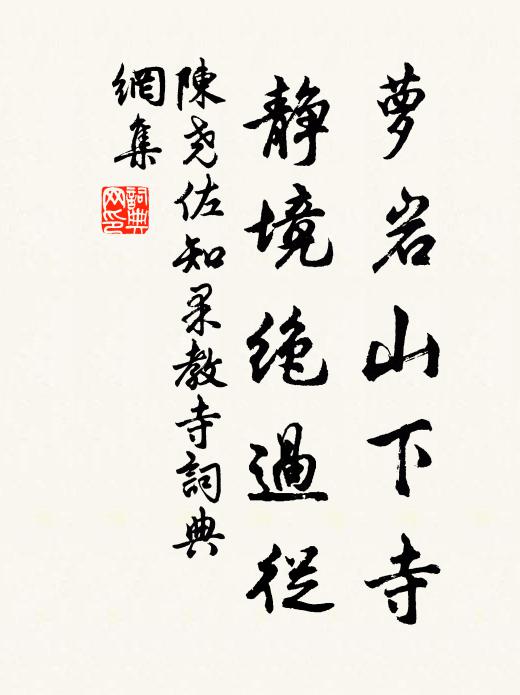 萝岩山下寺
静境绝過從
陳尧佐知果教寺詞典
網集
詞典网印